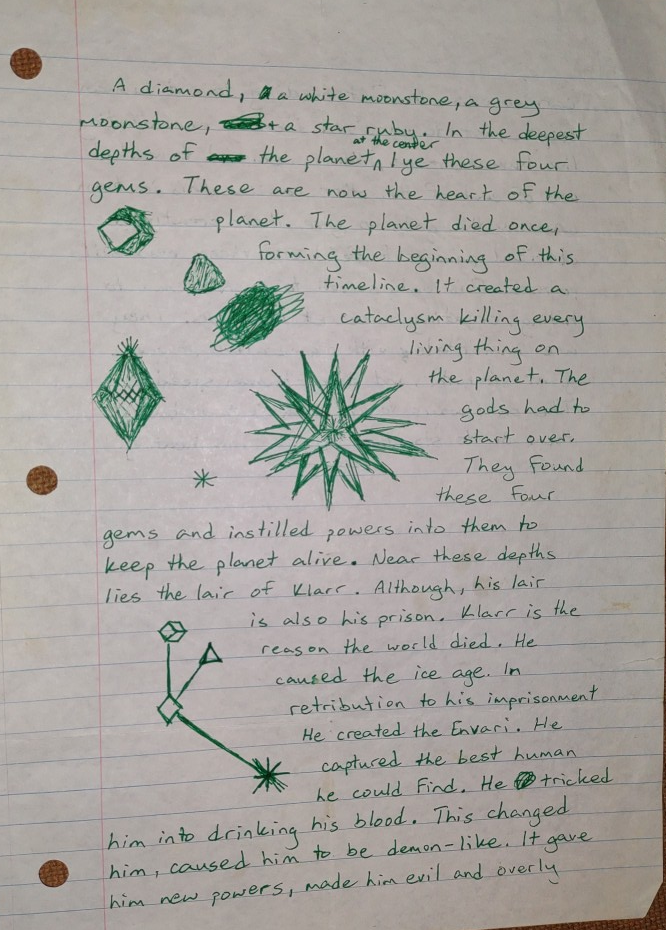 A diamond, a white moonstone, a grey
moonstone, + a star ruby. In the deepest
depths of the planet at the center lye these four
gems. These are now the heart of the
planet. The planet died once,
forming the beginning of this
timeline. It created a
cataclysm killing every
living thing on
the planet. The
gods had to
start over.
They found
these four
gems and instilled powers into them to
keep the planet alive. Near these depths
lies the lair of Klarr. Although, his lair
is also his prison. Klarr is the
reason the world died. He
caused the ice age. In
retribution to his imprisonment
He created the Envari. He
captured the best human
he could find. He tricked
him into drinking his blood. This changed
him, caused him to be demon-like. It gave
him new powers, made him evil and overly